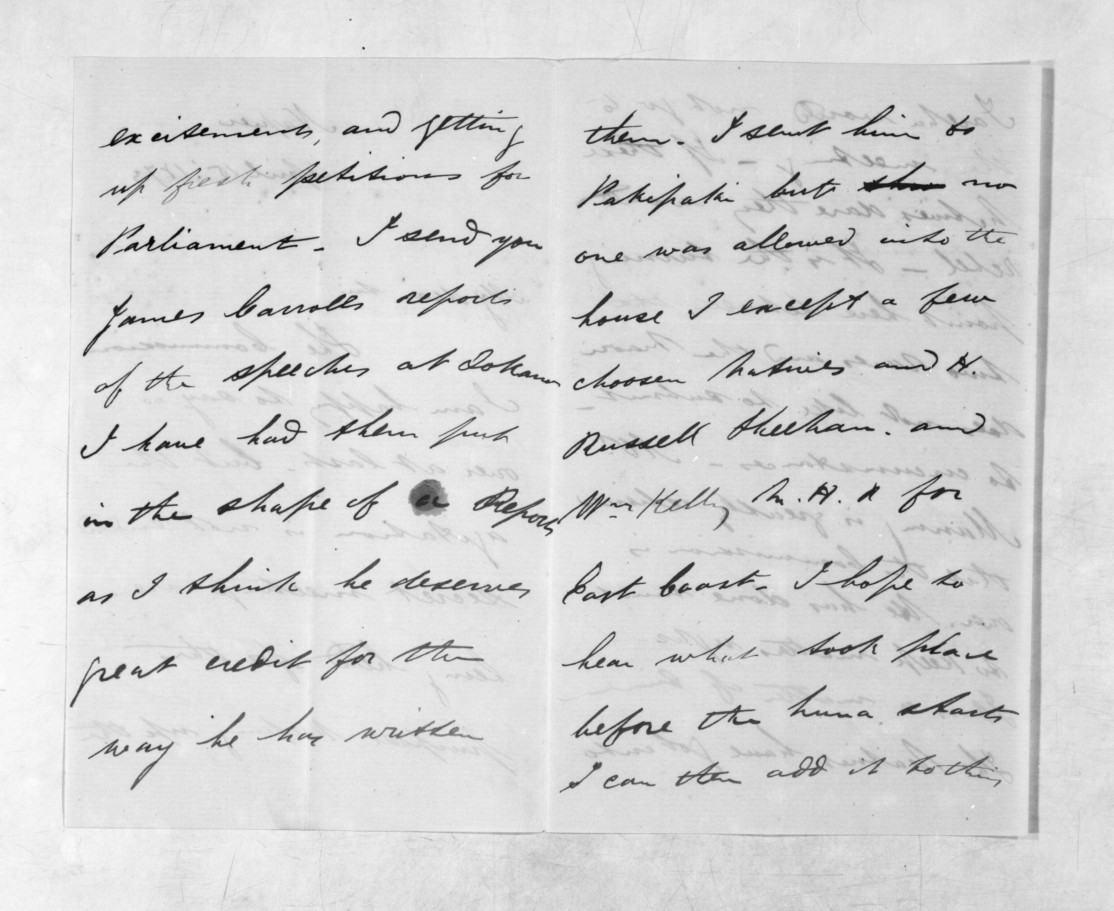 excitement, and getting
up fresh petitions for
Parliament - I send you
James Carrolls reports
of the speeches at Tokano
I have had them put
in the shape of a Report
as I think he deserves
great credit for the
way he has written
them. I sent him to
Pakipaki but no
one was allowed into the
house I except a few
choosen Natives and H.
Russell Sheehan. and
Wm Kelly M. H. R for
East Coast - I hope to
hear what took place
before the huna starts
I can then add it to this